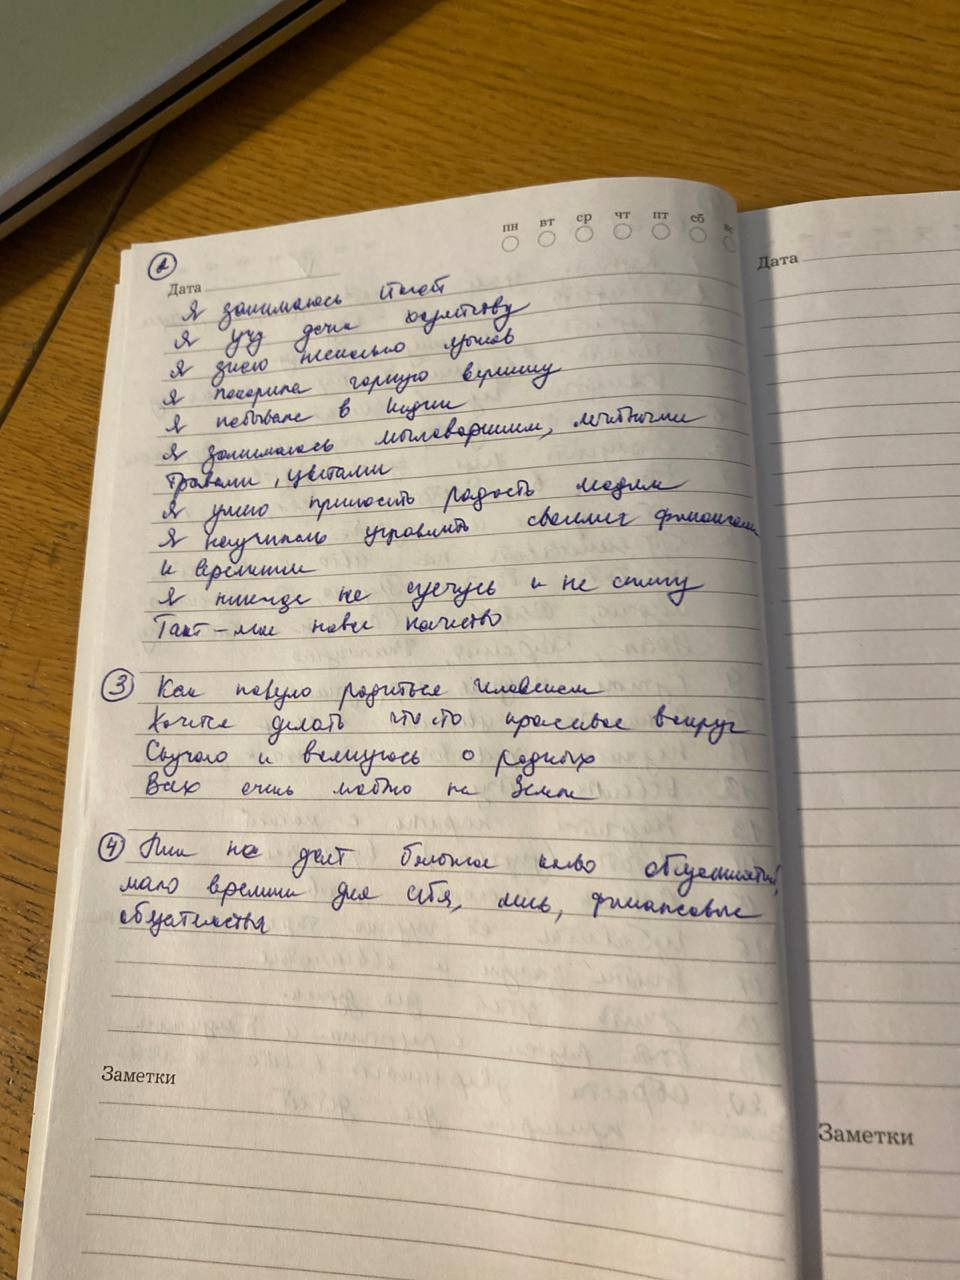 пн вт ср чт пт сб вс
2
Дата
Я занимаюсь йогой
Я учу дочь
Я знаю несколько языков
Я покорила горную вершину
Я побывала в Индии
Я занимаюсь мыловарением,
травами, цветами
Я умею приносить радость людям
Я научилась управлять своими финансами
и временем
Я никогда не суечусь и не спешу
Такт - мое новое качество
3 Как повезло родиться человеком
Хочется делать что-то красивое вокруг
Скучаю и волнуюсь о родных
Всех очень люблю на Земле
4 Мне не дает большое кол-во обязанностей,
мало времени для себя, лень, финансовые
обязательства
Заметки
Дата
Заметки